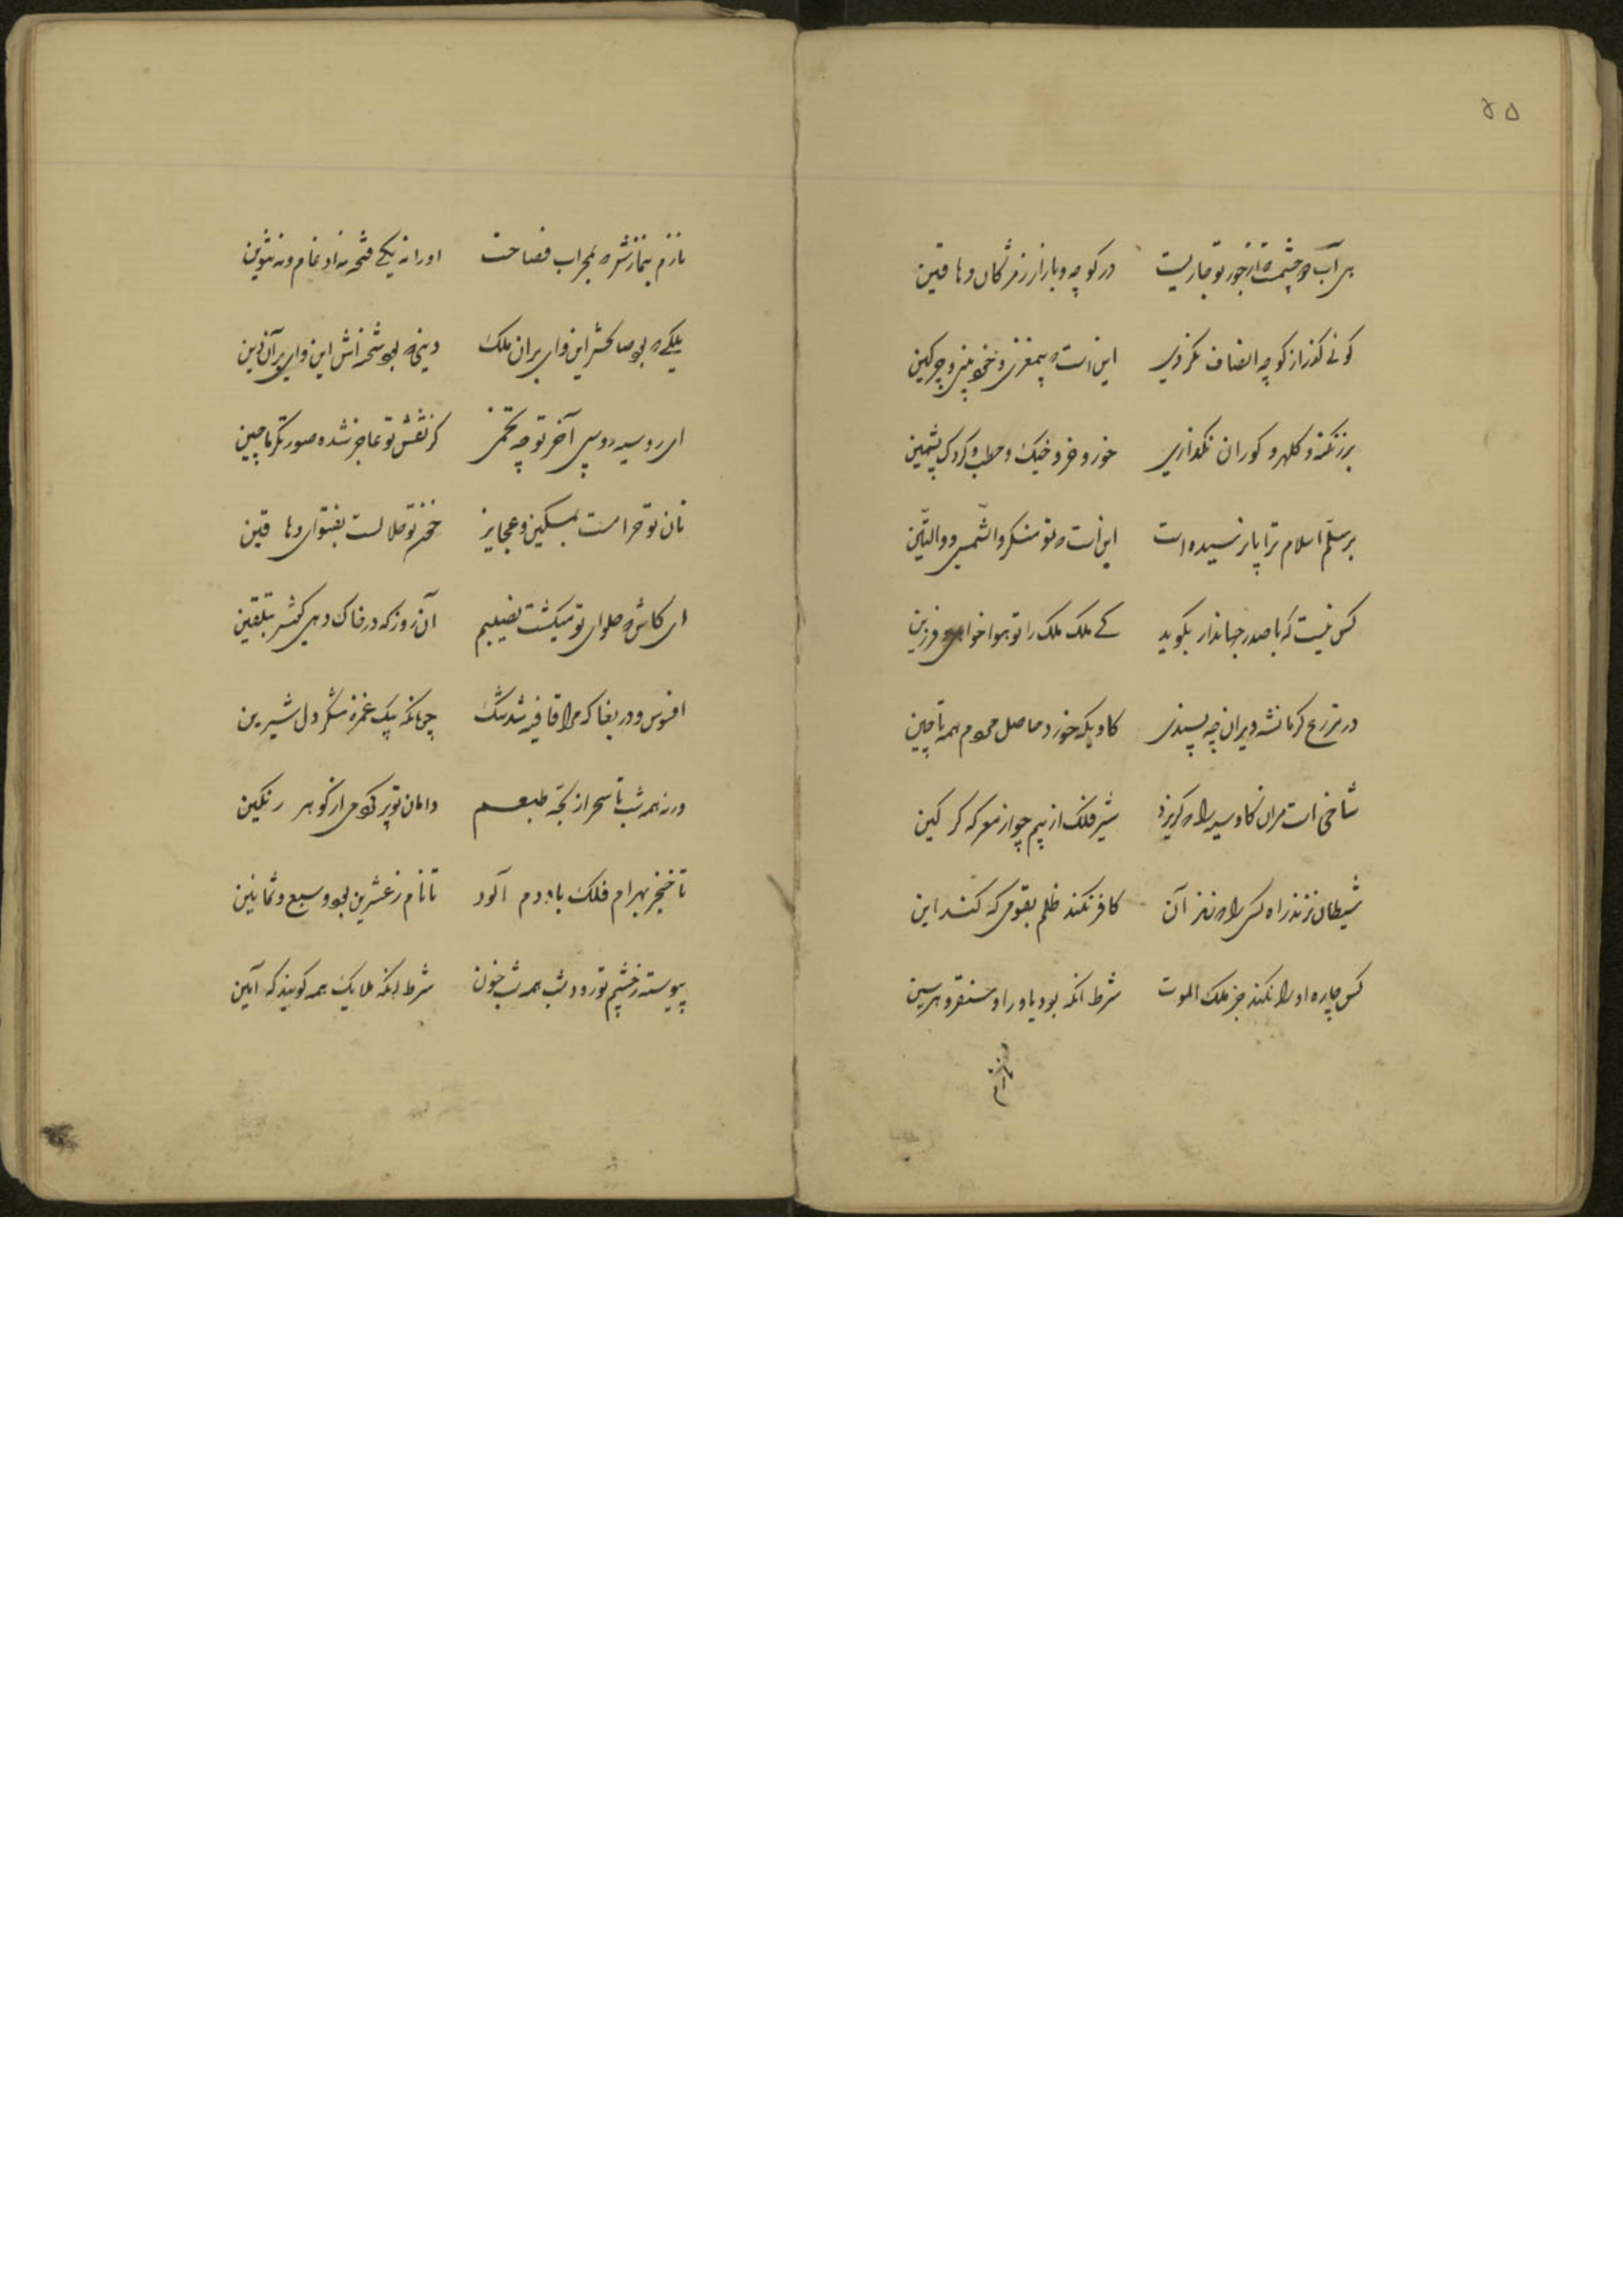 ۵۵
بس آب دو چشمست که از جور تو جاریست در کوچه و بازار ز مژگان دهاقین
گوئی گذر از کوچه انصاف نکردی این است که بیمغزی و خودبینی و چرکین
بر زنگنه و کلهر و کوران نگذاری خور و خر و خیک و حطب و کردک پشمین
بر سلّم اسلام ترا پا نرسیده است این است که تو منکر والشّمس و والتّین
کس نیست که با صدر جهاندار بگوید کی ملک ملک را تو هواخواهی و فرزین
در مزرع کرمانشه ویران چه پسندی کاویکه خورد حاصل مردم همه تا چین
شاخی است مر ان کاو سیه را که گریزد شیر فلک از بیم چو از معرکه گرگین
شیطان نزند راه کسی را که زند آن کافر نکند ظلم بقومی که کند این
کس چاره او را نکند جز ملک الموت شرط انکه بود یاور او سنقر و هرسین
نازم
نازم بنمازش که بمحراب فصاحت او را نه یکی فتحه نه ادغام و نه تنوین
ملکی که بود صالحش این وای بران ملک دینی که بود شحنه‌اش این وای بر آن دین
ای روسیه روسپی آخر تو چه تخمی کز نقش تو عاجز شده صورتگر ماچین
نان تو حرامست بمسکین و عجایز خون تو حلالست بفتوای دهاقین
ای کاش که حلوای تو میگشت نصیبم آن روز که در خاک دهی گوش بتلقین
افسوس و دریغا که مرا قافیه شد تنگ چونانکه بیک غمزه شکر دل شیرین
ورنه همه شب تا سحر از لجّه طبعم دامان تو پر کردمی از گوهر رنگین
تا خنجر بهرام فلک باد دم آلود تا نام ز عشرین بود و سبع و ثمانین
پیوسته ز خشم تو رود شب همه شب خون شرط انکه ملایک همه گویند که آمین